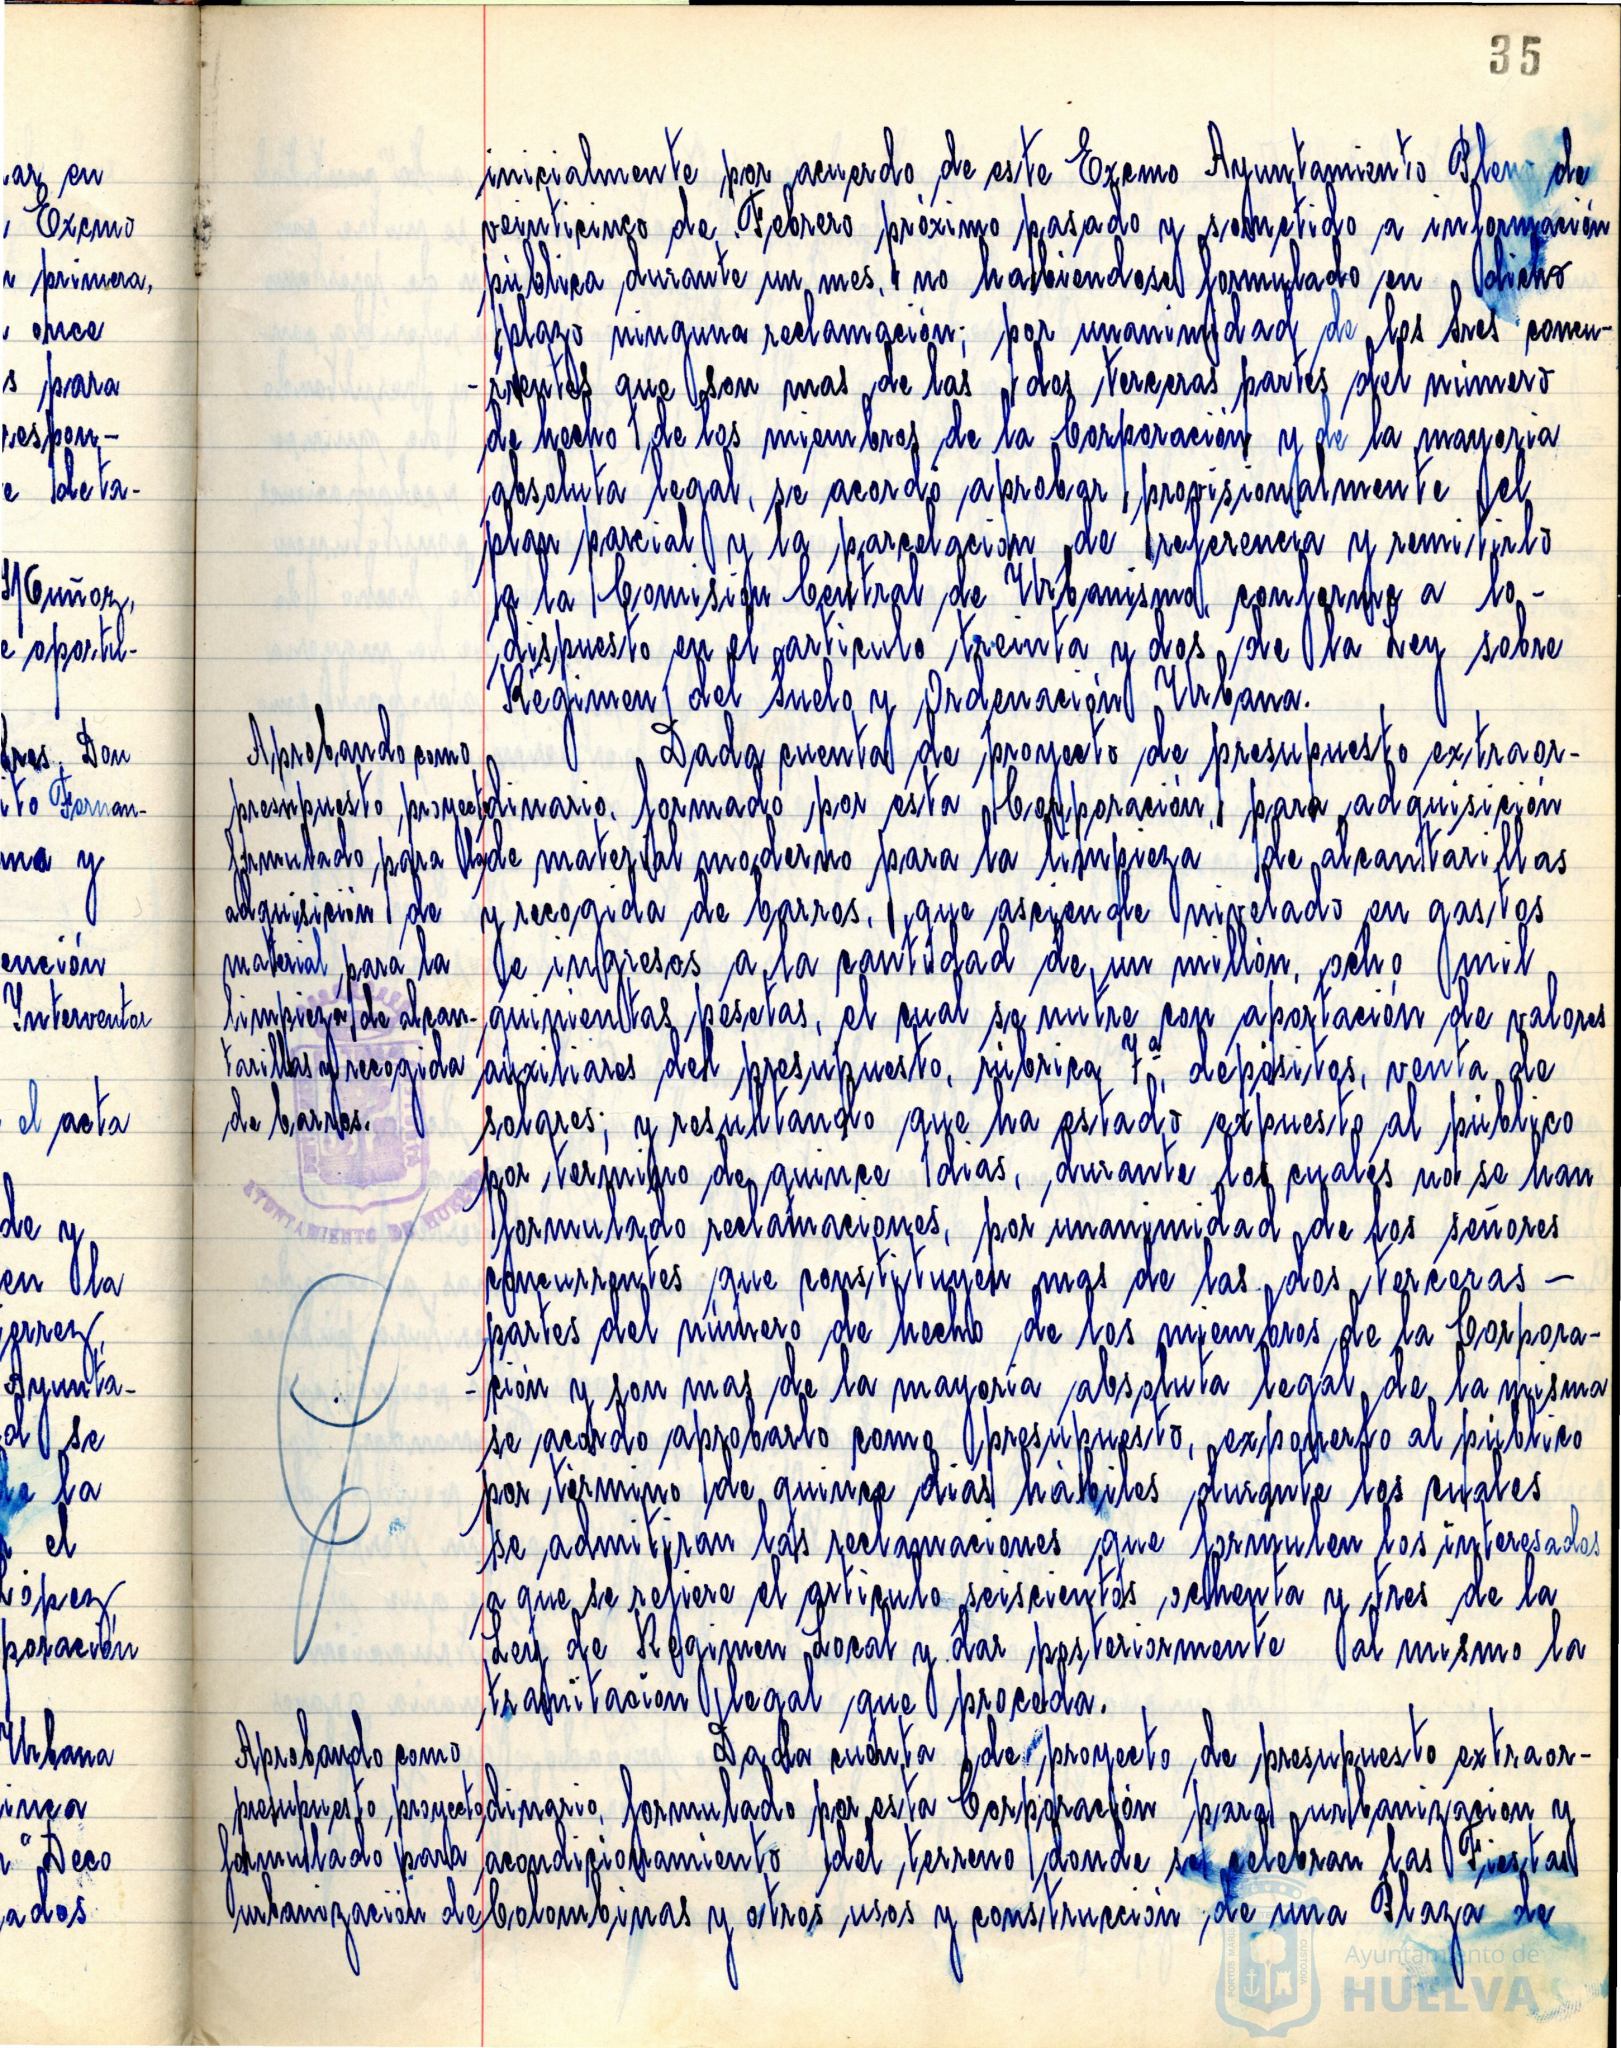 35
ar en
Excmo
primera,
once
s para
respon-
e deta-
Muñoz,
e apostil-
Don
Fernan-
y
ención
Interventor
el acta
de y
en la
Ayunta-
se
la
el
López
poración
Urbana
Deco
ados
inicialmente por acuerdo de este Excmo Ayuntamiento Pleno de
veinticinco de Febrero próximo pasado y sometido a información
pública durante un mes, no habiendose formulado en dicho
plazo ninguna reclamación; por unanimidad de los Sres concu-
-rrentes que son mas de las dos terceras partes del número
de hecho de los miembros de la Corporación y de la mayoria
absoluta legal, se acordó aprobar provisionalmente el
plan parcial y la parcelación de referencia y remitirlo
a la Comisión Central de Urbanismo, conforme a lo-
dispuesto en el articulo treinta y dos de la Ley sobre
Régimen del Suelo y Ordenación Urbana.
Aprobando como
presupuesto proyecto
formulado para la
adquisición de
material para la
limpieza de alcan-
tarillas y recogida
de barros.
AYUNTAMIENTO DE HUELVA
Dada cuenta de proyecto de presupuesto extraor-
dinario, formado por esta Corporación, para adquisición
de material moderno para la limpieza de alcantarillas
y recogida de barros, que asciende nivelado en gastos
e ingresos a la cantidad de un millón, ocho mil
quinientas pesetas, el cual se nutre con aportación de valores
auxiliares del presupuesto, rúbrica 7ª, depósitos, venta de
solares; y resultando que ha estado expuesto al público
por termino de quince dias, durante los cuales no se han
formulado reclamaciones, por unanimidad de los señores
concurrentes que constituyen mas de las dos terceras -
partes del número de hecho de los miembros de la Corpora-
-ción y son mas de la mayoria absoluta legal de la misma
se acordo aprobarlo como presupuesto, exponerlo al público
por término de quince dias hábiles durante los cuales
se admitiran las reclamaciones que formulen los interesados
a que se refiere el articulo seiscientos ochenta y tres de la
Ley de Régimen Local y dar posteriormente al mismo la
tramitación legal que proceda.
Aprobando como
presupuesto proyecto
formulado para
urbanización de
Dada cuenta de proyecto de presupuesto extraor-
dinario, formulado por esta Corporación para urbanización y
acondicionamiento del terreno donde se celebran las Fiestas
Colombinas y otros usos y construcción de una Plaza de
Ayuntamiento de
HUELVA